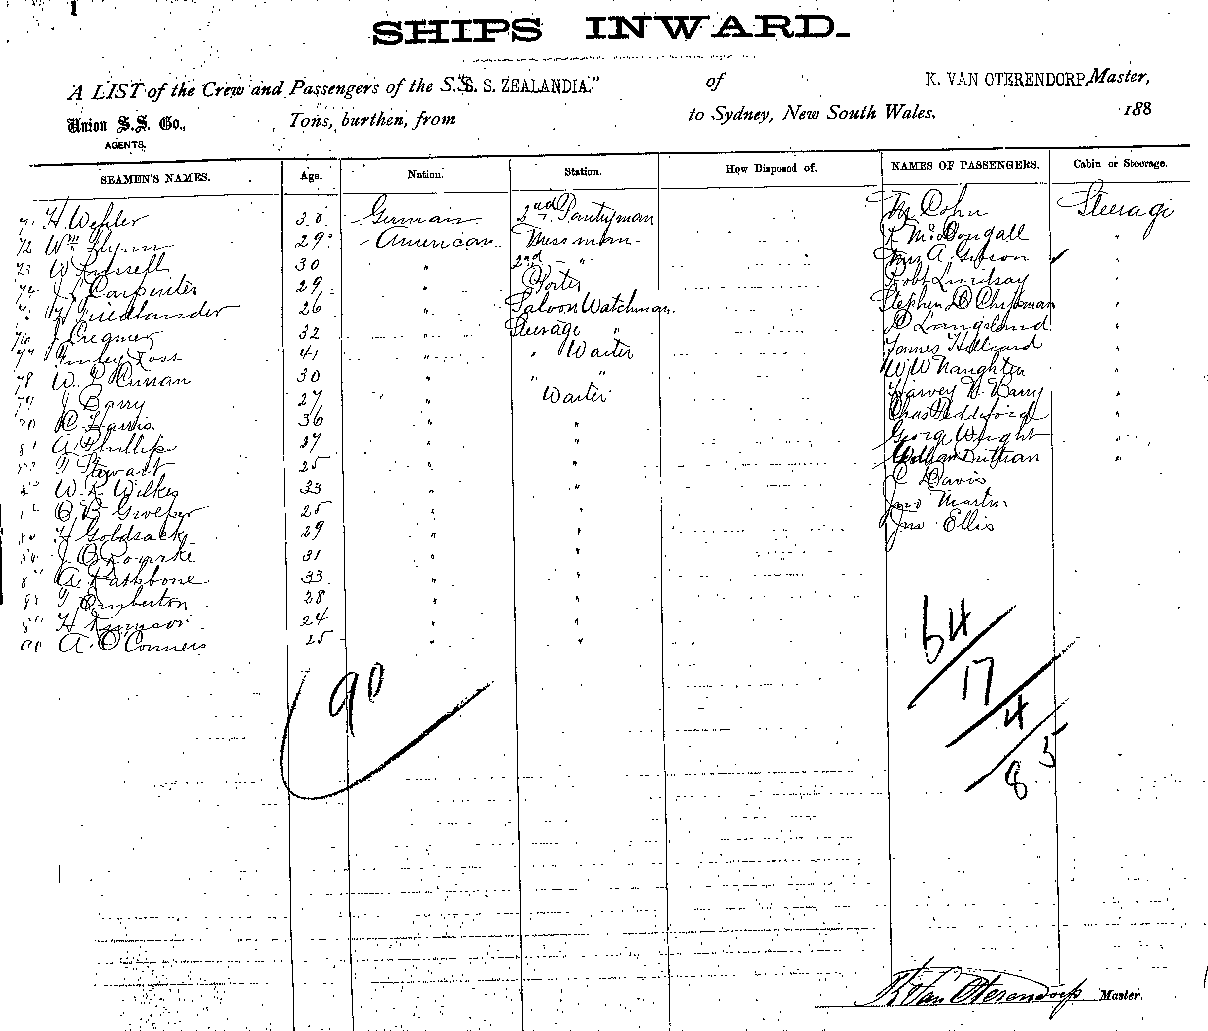 SHIPS INWARD.
A LIST of the Crew and Passengers of the S.S. "S. S. ZEALANDIA." of K. VAN OTERENDORP, Master,
Union S.S. Co., Tons, burthen, from to Sydney, New South Wales, 188
AGENTS.
SEAMEN'S NAMES. Age. Nation. Station. How Disposed of. NAMES OF PASSENGERS. Cabin or Steerage.
71 H. Wehler 30 German 2nd Pantryman M Cohn Steerage
72 Wm Glynn 29 American Messman McDougall "
73 W Russell 30 " 2nd " Mrs A. Gibson "
74 J S Carpenter 29 " Porter Robt Lindsay "
H Friedlander 26 " Saloon Watchman Stephen D Chipman "
76 J Cregmer 32 " Steerage " Langsland "
77 Finley Ross 41 " " Waiter James Hilliard "
78 W. L Curran 30 " " " W W Naughten "
79 J Barry 27 " Waiter Harvey D. Barry "
80 R Harris 36 " " Chas "
81 A. Phillips 27 " " George Wright "
T Stewart 25 " " William "
W. R. Wilkes 33 " " C Davis
O B 25 " " Jno Martin
H Goldsack 29 " " Jas Ellis
J O'Rourke 31 " "
A. Rathbone 33 " "
T Emberton 28 " "
H 24 " "
90 A. O'Conners 25 " "
90
64
17
4
85
K Van Oterendorp Master.